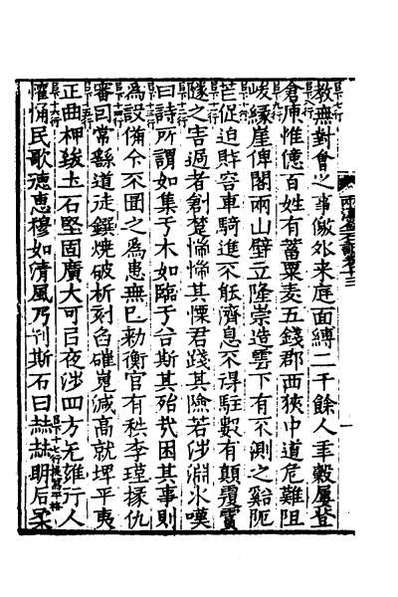 兩漢金石記卷十三
教無對會之事儌外來庭面縛二千餘人年穀屢登
倉庾惟億百姓有蓄粟麦五錢郡西狹中道危難阻
峻緣崖俾閣兩山壁立隆崇造雲下有不測之谿阨
芒促迫財容車騎進不能濟息不得駐數有顛覆霣
隧之害過者創楚惴惴其慄君踐其險若涉淵氷嘆
曰詩所謂如集于木如臨于谷斯其殆哉困其事則
為設備今不圖之為患無已勑衡官有秩李瑾掾仇
審因常繇道徒鐉燒破析刻臽磪嵬減高就埤平夷
正曲柙致土石堅固廣大可㠯夜涉四方无雍行人
懽悀民歌德惠穆如清風乃刊斯石曰赫赫明后柔